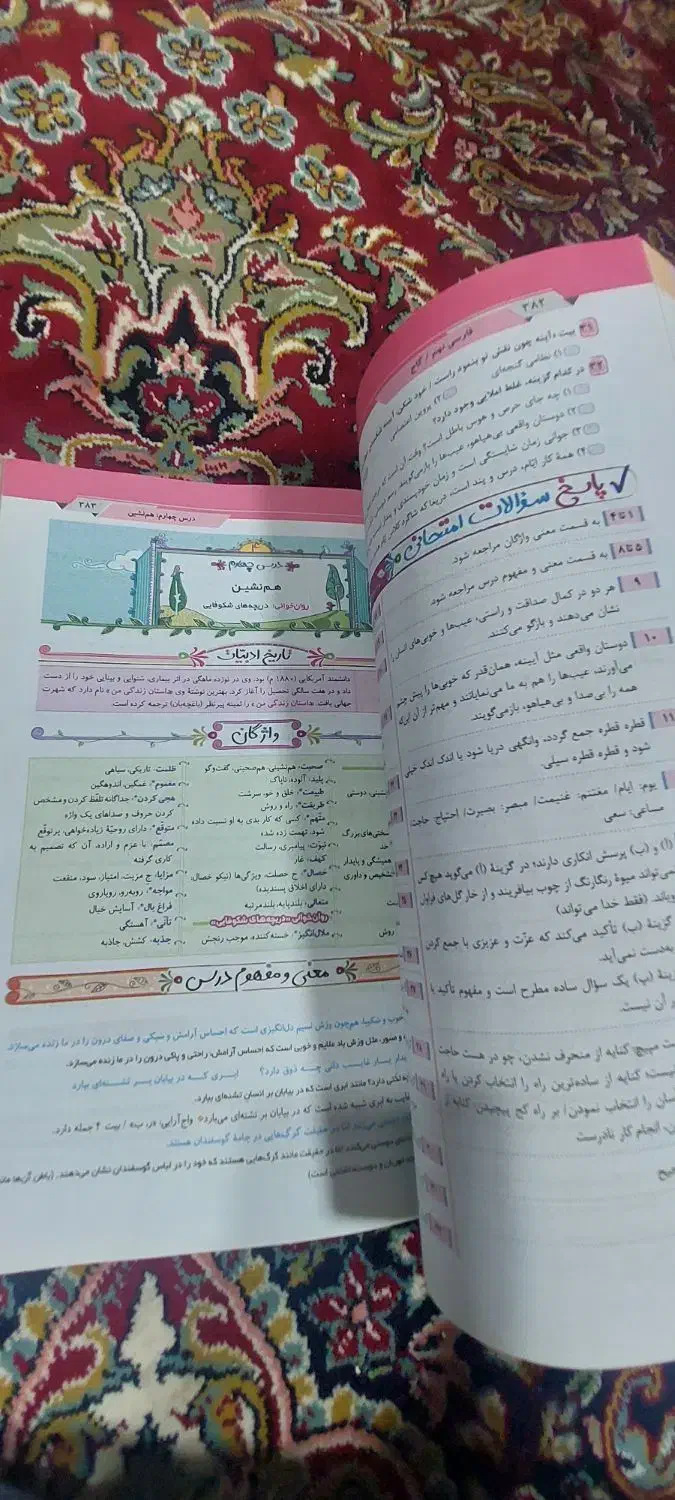 ۳۸۲
فارسی نهم / گاج
۳۱ بیت «آینه چون نقش تو بنمود راست / خود شکن، آینه
۱) نظامی گنجه‌ای
۲) پروین اعتصامی
۳۲ در کدام گزینه، غلط املایی وجود دارد؟
۱) چه جای حرص و هوس باطل است؟ وقت آن است که
۲) دوستان واقعی بی‌هیاهو، عیب‌ها را بازمی‌گویند.
۳) جوانی زمان شایستگی است و زمان خودپسندی و
۴) همهٔ کار ایّام، درس و پند است، دریغا که شاگرد
پاسخ سؤالات امتحانی
۱ تا ۴ به قسمت معنی واژگان مراجعه شود.
۵ تا ۸ به قسمت معنی و مفهوم درس مراجعه شود.
۹ هر دو در کمال صداقت و راستی، عیب‌ها و خوبی‌های انسان را
نشان می‌دهند و بازگو می‌کنند.
۱۰ دوستان واقعی مثل آیینه، همان‌قدر که خوبی‌ها را پیش چشم
می‌آورند، عیب‌ها را هم به ما می‌نمایانند و مهم‌تر از آن این‌که
همه را بی‌صدا و بی‌هیاهو، بازمی‌گویند.
۱۱ قطره قطره جمع گردد، وانگهی دریا شود یا اندک اندک خیلی
شود و قطره قطره سیلی.
یوم: ایام/ مغتنم: غنیمت/ مبصر: بصیرت/ احتیاج: حاجت
مساعی: سعی
(أ) و (ب) پرسش انکاری دارند؛ در گزینهٔ (أ) می‌گوید هیچ‌کس
نمی‌تواند میوهٔ رنگارنگ از چوب بیافریند و از خار گل‌های فراوان
برویاند. (فقط خدا می‌تواند)
گزینهٔ (ب) تأکید می‌کند که عزّت و عزیزی با جمع کردن
به‌دست نمی‌آید.
گزینهٔ (پ) یک سؤال ساده مطرح است و مفهوم تأکید یا
در آن نیست.
مپیچ: کنایه از منحرف نشدن، چو در هست حاجت
نیست: کنایه از ساده‌ترین راه را انتخاب کردن یا راه
آسان را انتخاب نمودن/ بر راه کج پیچیدن: کنایه از
انجام کار نادرست
۳۸۳
درس چهارم: هم‌نشین
درس چهارم
هم‌نشین
روان‌خوانی: دریچه‌های شکوفایی
تاریخ ادبیات
دانشمند آمریکایی (۱۸۸۰ م) بود. وی در نوزده ماهگی در اثر بیماری، شنوایی و بینایی خود را از دست
داد و در هفت سالگی تحصیل را آغاز کرد. بهترین نوشتهٔ وی «داستان زندگی من» نام دارد که شهرت
جهانی یافت. «داستان زندگی من» را ثمینه پیرنظر (باغچه‌بان) ترجمه کرده است.
واژگان
صحبت: هم‌نشینی، هم‌صحبتی، گفت‌وگو
پلید: آلوده، ناپاک
طبیعت: خلق و خو، سرشت
طریقت: راه و روش
متّهم: کسی که کار بدی به او نسبت داده
شود، تهمت زده شده
نبوّت: پیامبری، رسالت
کهف: غار
خصال: ج خصلت، ویژگی‌ها (نیکو خصال:
دارای اخلاق پسندیده)
متعالی: بلندپایه، بلندمرتبه
روان‌خوانی «دریچه‌های شکوفایی»
ملال‌انگیز: خسته‌کننده، موجب رنجش
ظلمت: تاریکی، سیاهی
مغموم: غمگین، اندوهگین
هجی کردن: جداگانه تلفّظ کردن و مشخص
کردن حروف و صداهای یک واژه
متوقع: دارای روحیّهٔ زیاده‌خواهی، پرتوقّع
مصمّم: با عزم و اراده، آن که تصمیم به
کاری گرفته
مزایا: ج مزیت، امتیاز، سود، منفعت
مواجه: روبه‌رو، رویاروی
فراغ بال: آسایش خیال
تأنّی: آهستگی
جذبه: کشش، جاذبه
معنی و مفهوم درس
خوب و شکیبا، همچون وزش نسیم دل‌انگیزی است که احساس آرامش و سبکی و صفای درون را در ما زنده می‌سازد.
و صبور، مثل وزش باد ملایم و خوبی است که احساس آرامش، راحتی و پاکی درون را در ما زنده می‌سازد.
دیدار یار غایب دانی چه ذوق دارد؟ ابری که در بیابان بر تشنه‌ای ببارد
لذّتی دارد؟ مانند ابری است که در بیابان بر انسان تشنه‌ای ببارد.
غایب به ابری شبیه شده است که در بیابان بر تشنه‌ای می‌بارد واج‌آرایی: «ر، ب» / بیت ۴ جمله دارد.
حقیقت گرگ‌هایی در جامهٔ گوسفندان هستند.
دوستی می‌کنند، امّا در حقیقت مانند گرگ‌هایی هستند که خود را در لباس گوسفندان نشان می‌دهند.